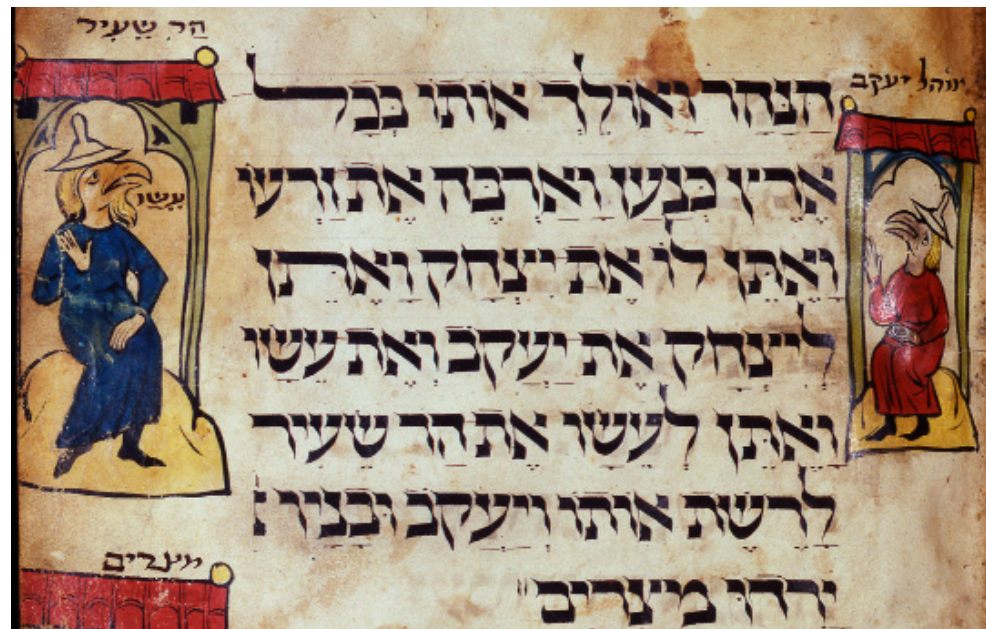 הַר שֵׂעִיר
אוהל יעקב
הַנָּהָר וָאוֹלֵךְ אוֹתוֹ בְּכָל
אֶרֶץ כְּנָעַן וָאַרְבֶּה אֶת זַרְעוֹ
עֵשָׂו
וָאֶתֵּן לוֹ אֶת יִצְחָק וָאֶתֵּן
לְיִצְחָק אֶת יַעֲקֹב וְאֶת עֵשָׂו
וָאֶתֵּן לְעֵשָׂו אֶת הַר שֵׂעִיר
לָרֶשֶׁת אוֹתוֹ וְיַעֲקֹב וּבָנָיו
מצרים
יָרְדוּ מִצְרָיִם